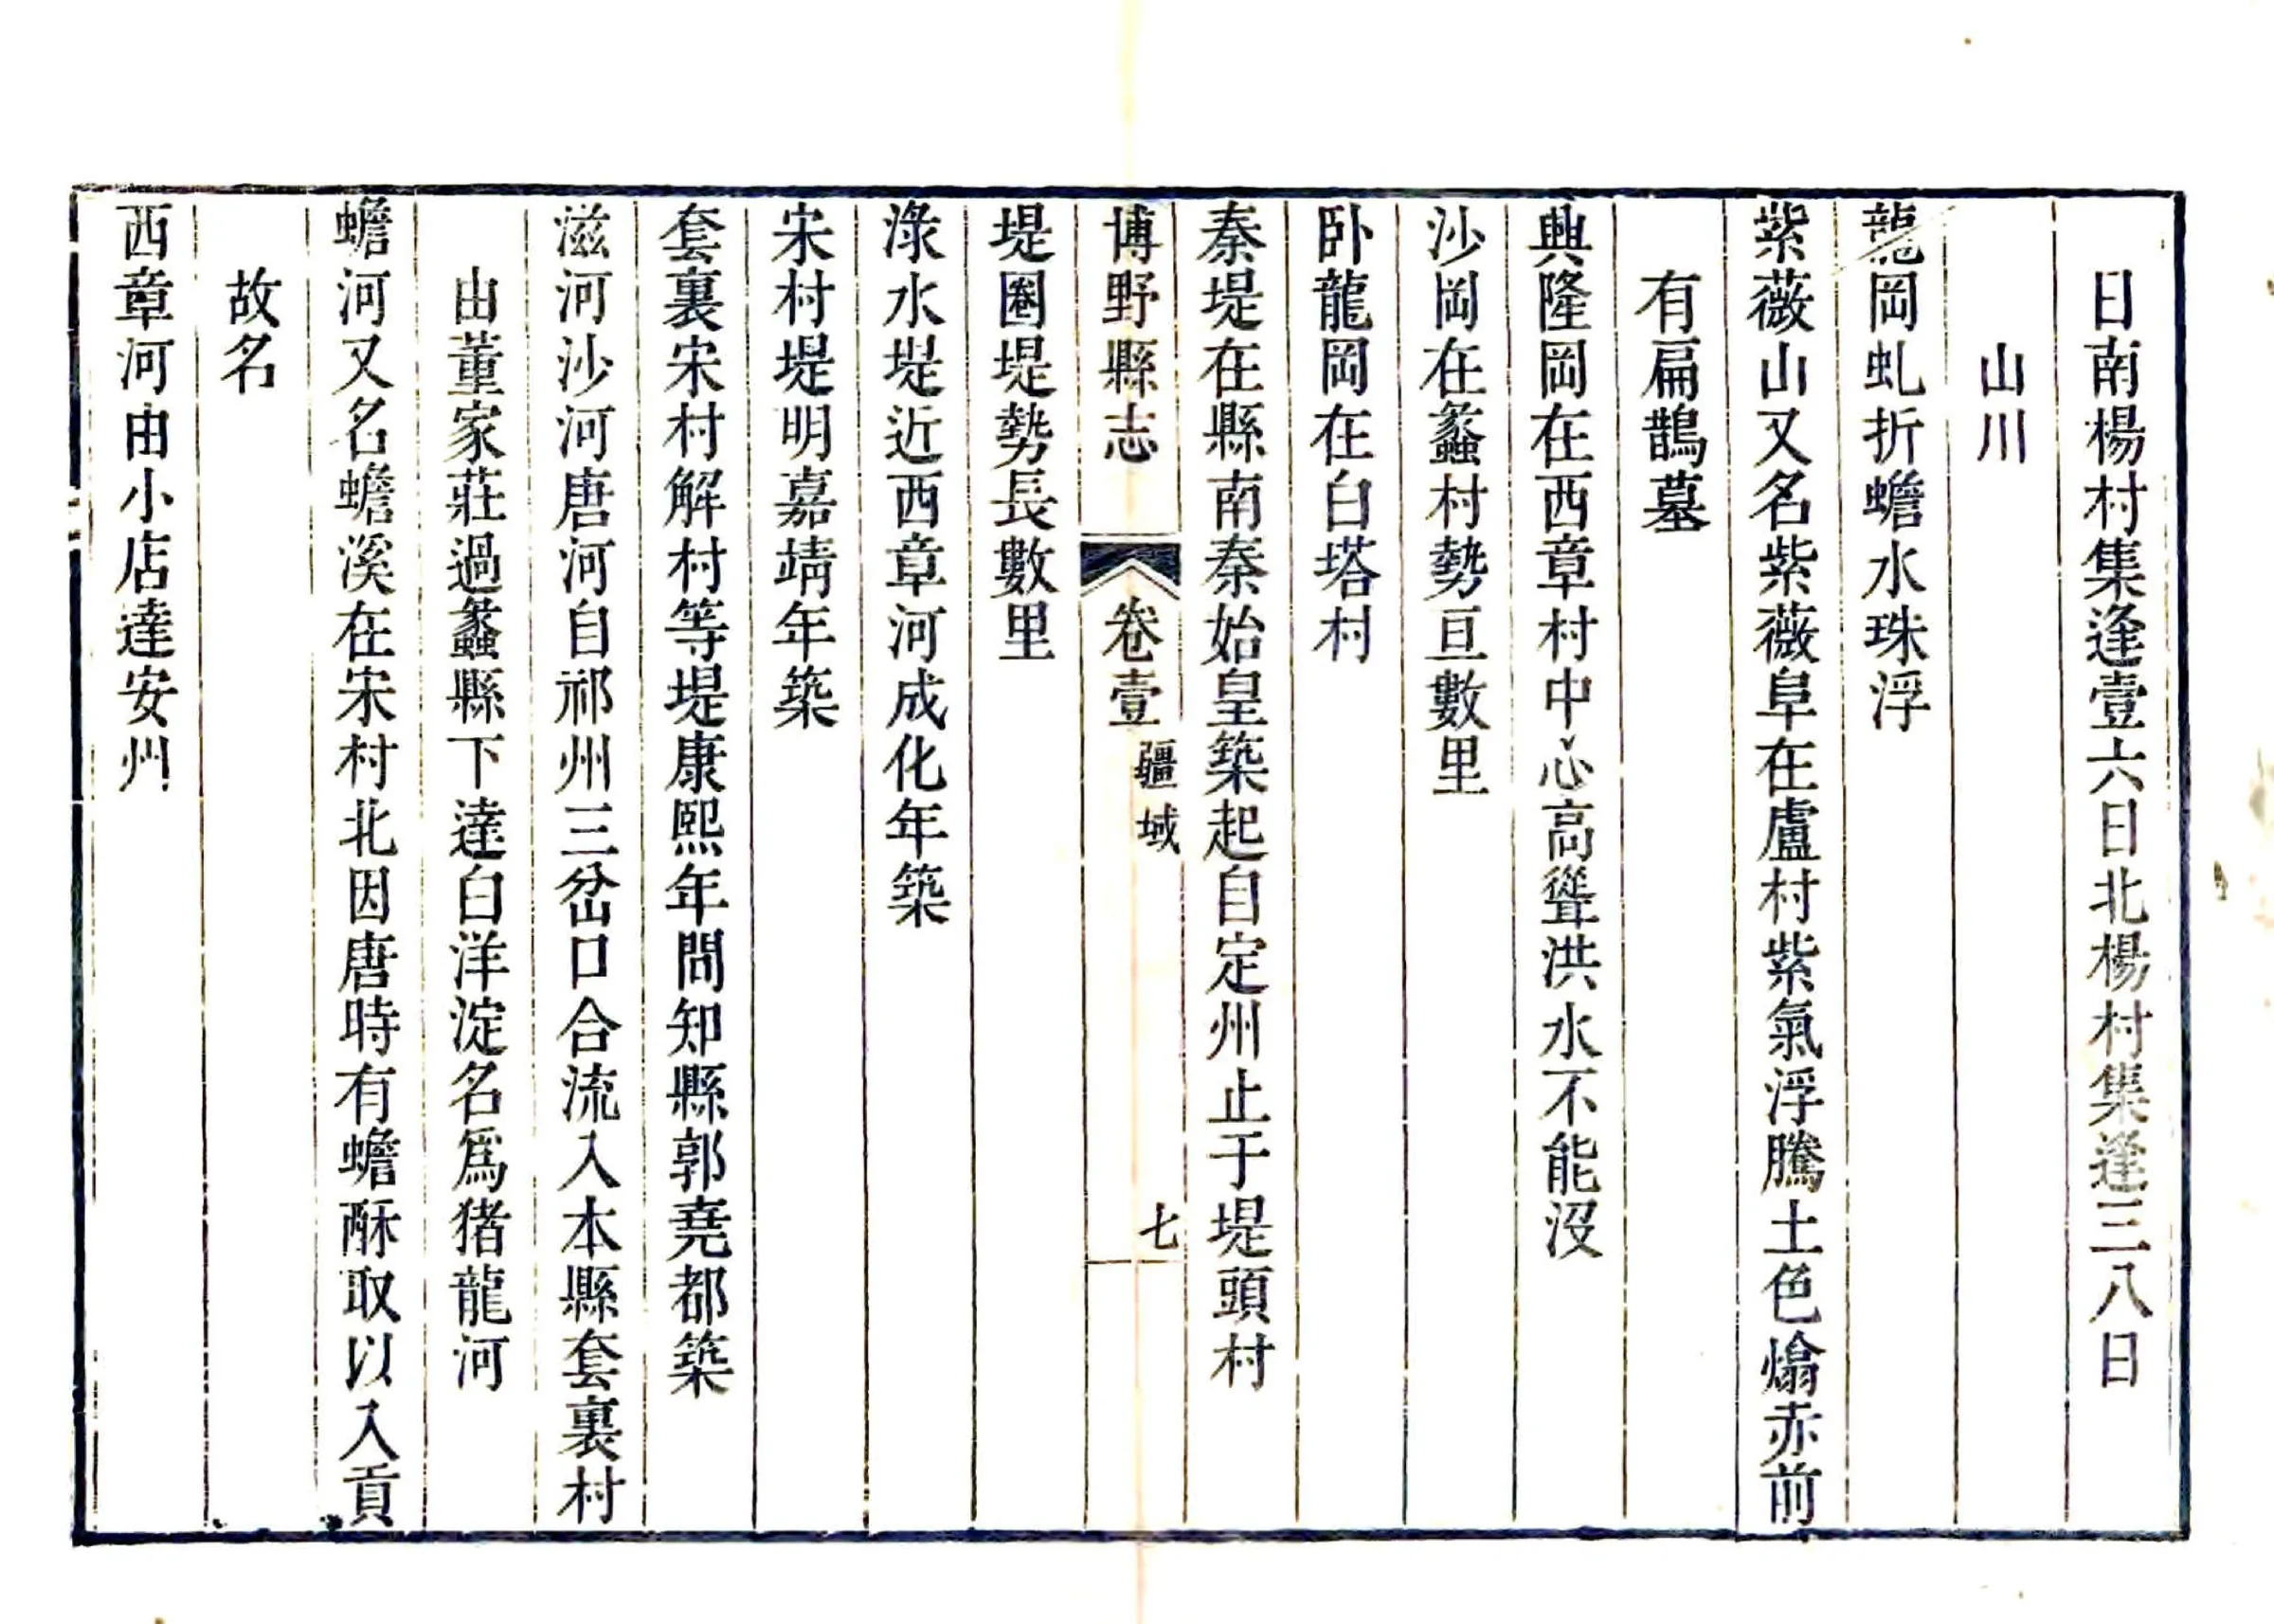 日南楊村集逢壹六日北楊村集逢三八日
山川
龍岡虬折蟾水珠浮
紫薇山又名紫薇阜在盧村紫氣浮騰土色熻赤前
有扁鵲墓
興隆岡在西章村中心高聳洪水不能沒
沙岡在蠡村勢亘數里
卧龍岡在白塔村
秦堤在縣南秦始皇築起自定州止于堤頭村
博野縣志 卷壹 疆域 七
堤圈堤勢長數里
淥水堤近西章河成化年築
宋村堤明嘉靖年築
套裏宋村解村等堤康熙年間知縣郭堯都築
滋河沙河唐河自祁州三岔口合流入本縣套裏村
由董家莊過蠡縣下達白洋淀名爲猪龍河
蟾河又名蟾溪在宋村北因唐時有蟾酥取以入貢
故名
西章河由小店達安州